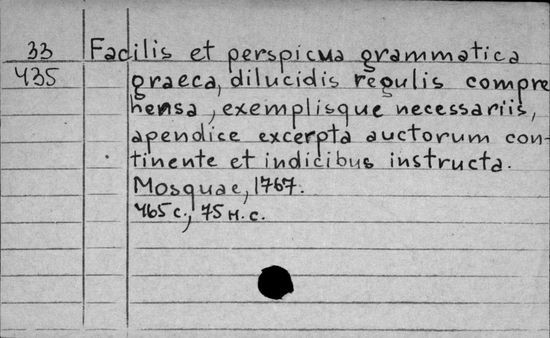 33 Facilis et perspicua grammatica
435 graeca, dilucidis regulis compre
hensa, exemplisque necessariis,
apendice excerpta auctorum con-
tinente et indicibus instructa.
Mosquae, 1767.
465 с., 75 н. с.